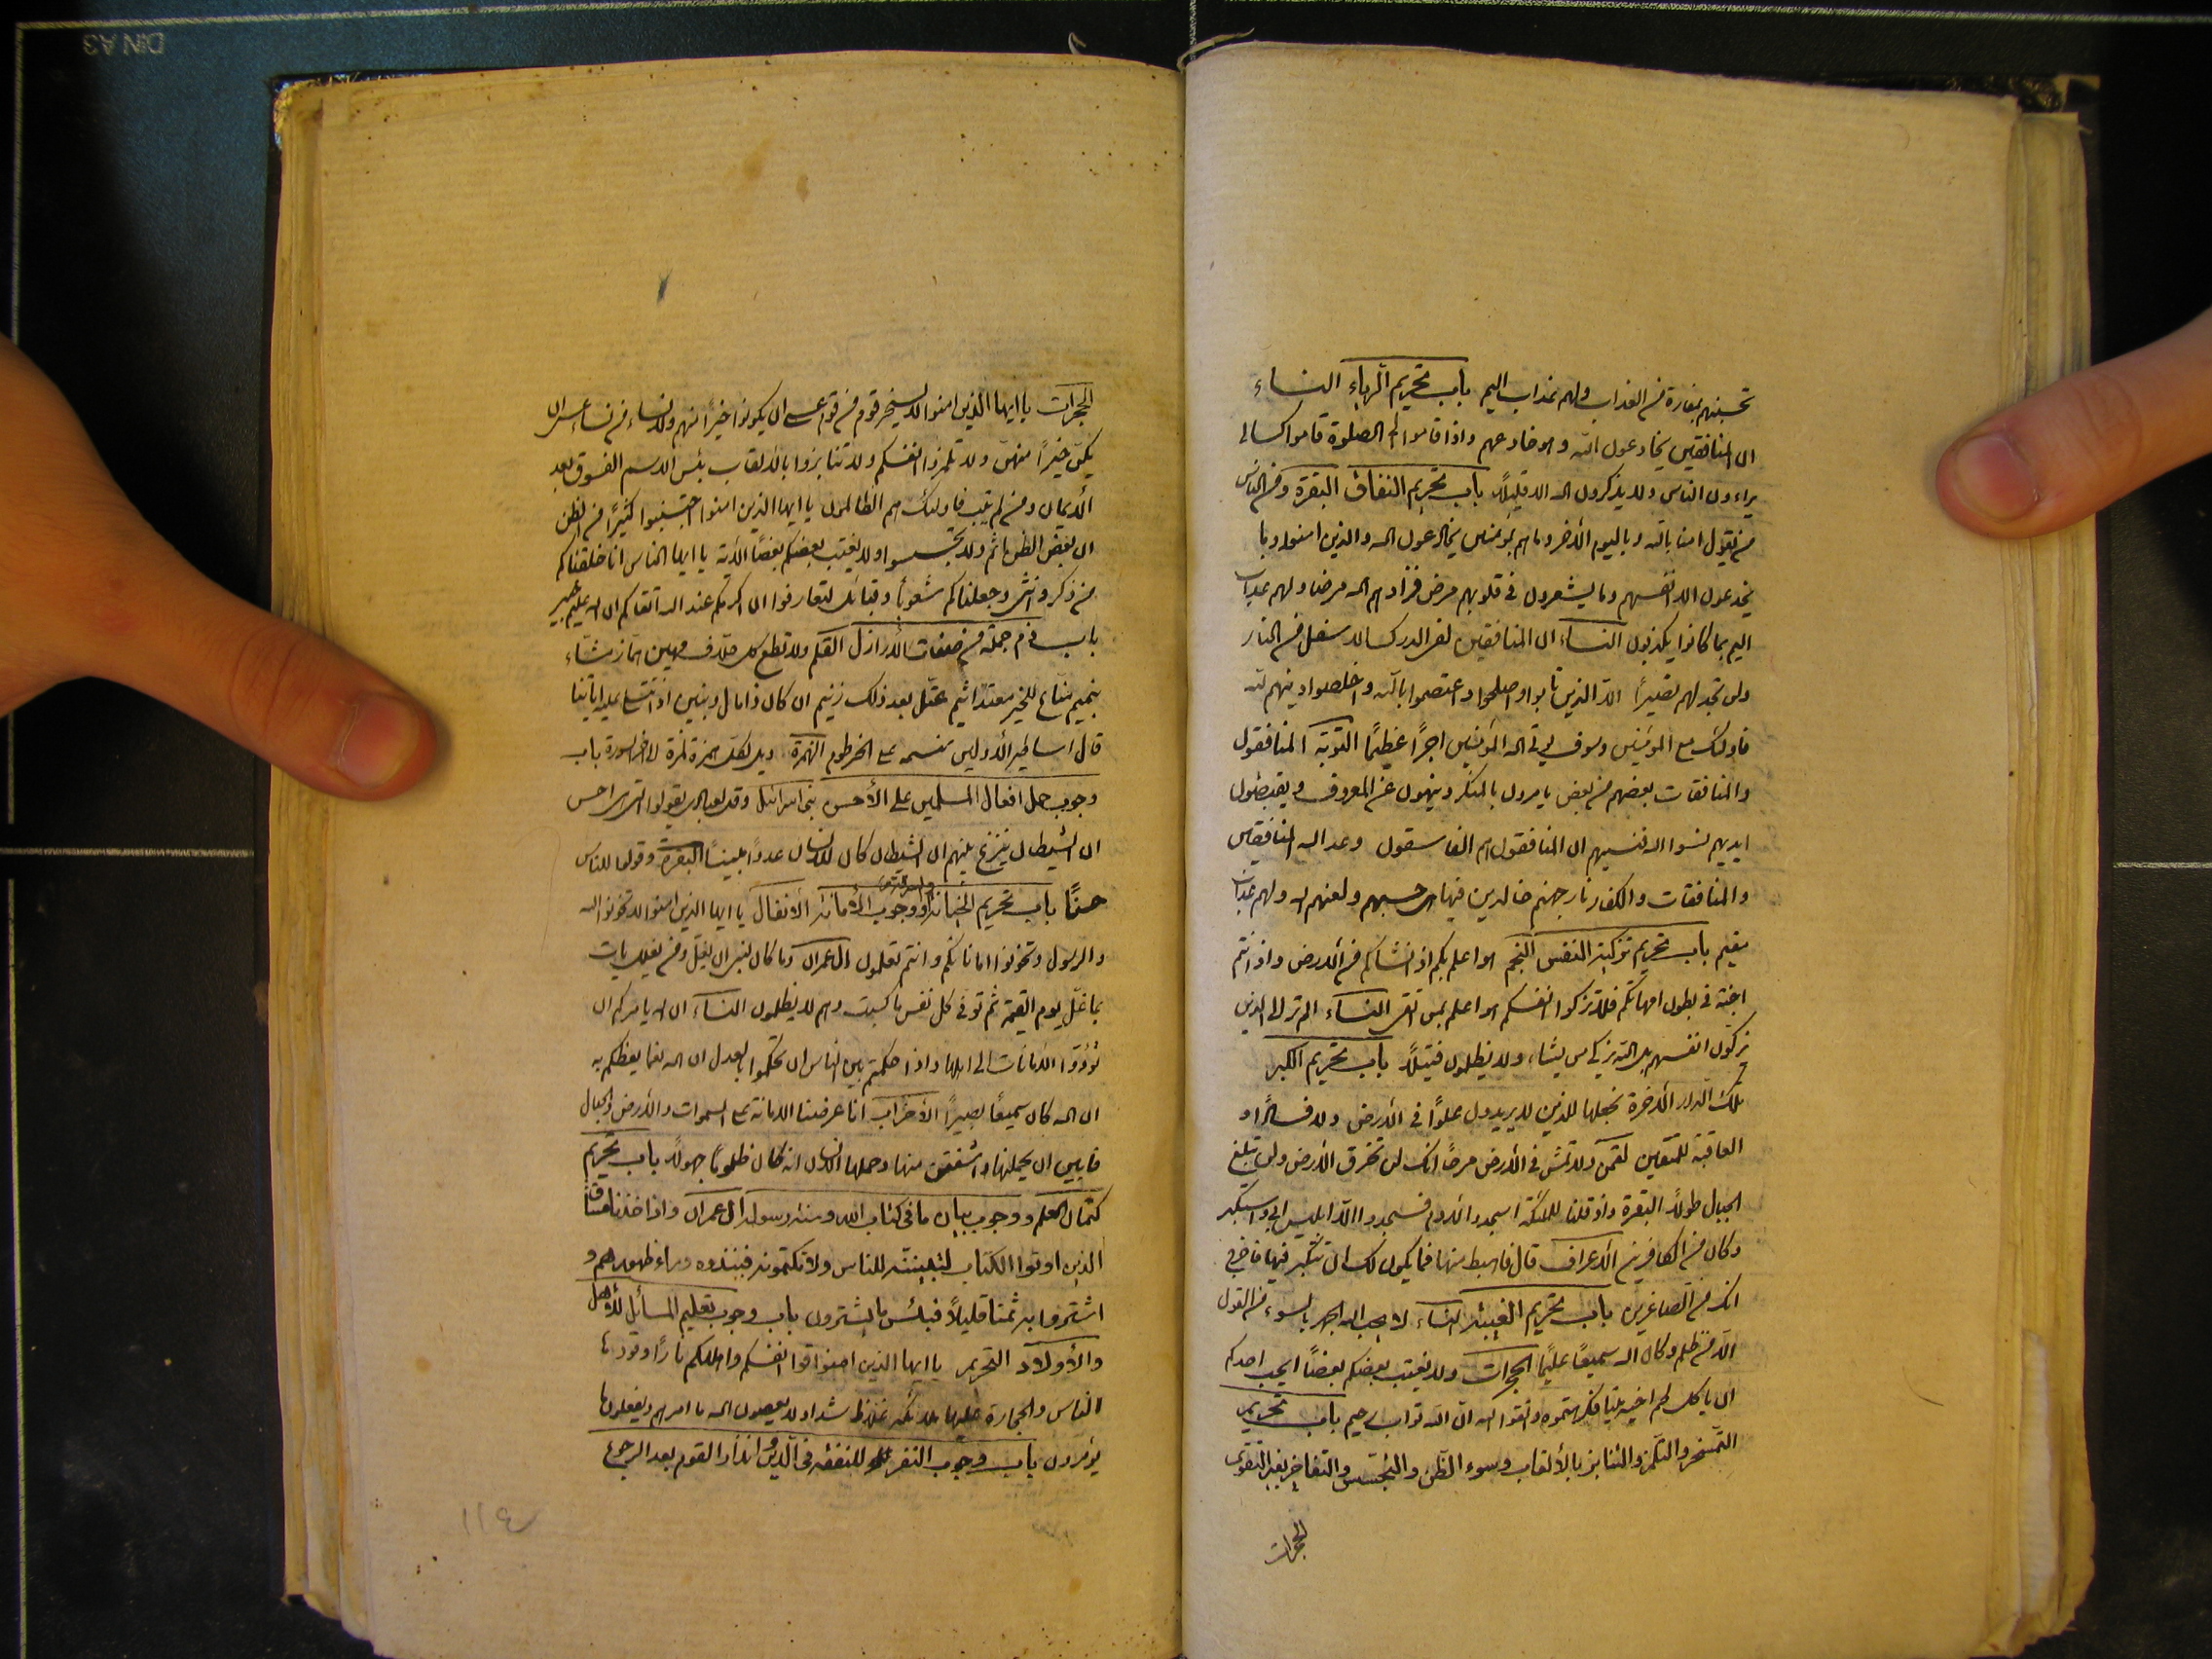 تحسبنهم بمفازة من العذاب ولهم عذاب اليم باب تحريم الرياء النساء
ان المنافقين يخادعون الله وهو خادعهم واذا قاموا الى الصلوة قاموا كسالى
يراءون الناس ولا يذكرون الله الا قليلاً باب تحريم النفاق البقرة ومن الناس
من يقول امنا بالله وباليوم الآخر وما هم بمؤمنين يخادعون الله والذين امنوا وما
يخدعون الا انفسهم وما يشعرون في قلوبهم مرض فزادهم الله مرضا ولهم عذاب
اليم بما كانوا يكذبون النساء ان المنافقين في الدرك الاسفل من النار
ولن تجد لهم نصيراً الا الذين تابوا واصلحوا واعتصموا بالله واخلصوا دينهم لله
فاولئك مع المؤمنين وسوف يؤتي الله المؤمنين اجراً عظيماً التوبة المنافقون
والمنافقات بعضهم من بعض يامرون بالمنكر وينهون عن المعروف ويقبضون
ايديهم نسوا الله فنسيهم ان المنافقون هم الفاسقون وعد الله المنافقين
والمنافقات والكفار نار جهنم خالدين فيها هي حسبهم ولعنهم الله ولهم عذاب
مقيم باب تحريم تزكية النفس النجم هو اعلم بكم اذ انشأكم من الأرض واذ انتم
اجنة في بطون امهاتكم فلا تزكوا انفسكم هو اعلم بمن اتقى النساء الم تر الى الذين
يزكون انفسهم بل الله يزكي من يشاء ولا يظلمون فتيلاً باب تحريم الكبر
تلك الدار الآخرة نجعلها للذين لا يريدون علواً في الأرض ولا فساداً و
العاقبة للمتقين لقمن ولا تمش في الأرض مرحاً انك لن تخرق الأرض ولن تبلغ
الجبال طولاً البقرة واذ قلنا للملئكة اسجدوا لآدم فسجدوا الا ابليس ابى واستكبر
وكان من الكافرين الأعراف قال فاهبط منها فما يكون لك ان تتكبر فيها فاخرج
انك من الصاغرين باب تحريم الغيبة النساء لا يحب الله الجهر بالسوء من القول
الا من ظلم وكان الله سميعاً عليماً الحجرات ولا يغتب بعضكم بعضاً ايحب احدكم
ان ياكل لحم اخيه ميتا فكرهتموه واتقوا الله ان الله تواب رحيم باب تحريم
التسخر واللمز والتنابز بالألقاب وسوء الظن والتجسس والتفاخر بغير التقوى
الحجرات
الحجرات يا ايها الذين امنوا لا يسخر قوم من قوم عسى ان يكونوا خيراً منهم ولا نساء من نساء عسى ان
يكن خيراً منهن ولا تلمزوا انفسكم ولا تنابزوا بالألقاب بئس الاسم الفسوق بعد
الأيمان ومن لم يتب فاولئك هم الظالمون يا ايها الذين امنوا اجتنبوا كثيراً من الظن
ان بعض الظن اثم ولا تجسسوا ولا يغتب بعضكم بعضاً الآية يا ايها الناس انا خلقناكم
من ذكر وانثى وجعلناكم شعوباً وقبائل لتعارفوا ان اكرمكم عند الله اتقاكم ان الله عليم خبير
باب في ذم جملة من صفات الأرازل القلم ولا تطع كل حلاف مهين هماز مشاء
بنميم مناع للخير معتد اثيم عتل بعد ذلك زنيم ان كان ذا مال وبنين اذا تتلى عليه اياتنا
قال اساطير الأولين سنسمه على الخرطوم الهمزة ويل لكل همزة لمزة الى اخر السورة باب
وجوب حمل افعال المسلمين على الأحسن بني اسرائيل وقل لعبادي يقولوا التي هي احسن
ان الشيطان ينزغ بينهم ان الشيطان كان للانسان عدواً مبيناً البقرة وقولوا للناس
حسناً باب تحريم الخيانة ووجوب الأمانة الأنفال يا ايها الذين امنوا لا تخونوا الله
والرسول وتخونوا اماناتكم وانتم تعلمون ال عمران وما كان لنبي ان يغل ومن يغلل يات
بما غل يوم القيمة ثم توفى كل نفس ما كسبت وهم لا يظلمون النساء ان الله يامركم ان
تؤدوا الأمانات الى اهلها واذا حكمتم بين الناس ان تحكموا بالعدل ان الله نعما يعظكم به
ان الله كان سميعاً بصيراً الأحزاب انا عرضنا الامانة على السموات والأرض والجبال
فابين ان يحملنها واشفقن منها وحملها الانسان انه كان ظلوماً جهولاً باب تحريم
كتمان العلم ووجوب بيان ما في كتاب الله وسنة رسوله ال عمران واذ اخذنا ميثاق
الذين اوتوا الكتاب لتبيننه للناس ولا تكتمونه فنبذوه وراء ظهورهم و
اشتروا به ثمنا قليلاً فبئس ما يشترون باب وجوب تعليم المسائل للأهل
والأولاد التحريم يا ايها الذين امنوا قوا انفسكم واهليكم ناراً وقودها
الناس والحجارة عليها ملائكة غلاظ شداد لا يعصون الله ما امرهم ويفعلون ما
يؤمرون باب وجوب النفر للتفقه في الدين وانذار القوم بعد الرجوع
١١٤